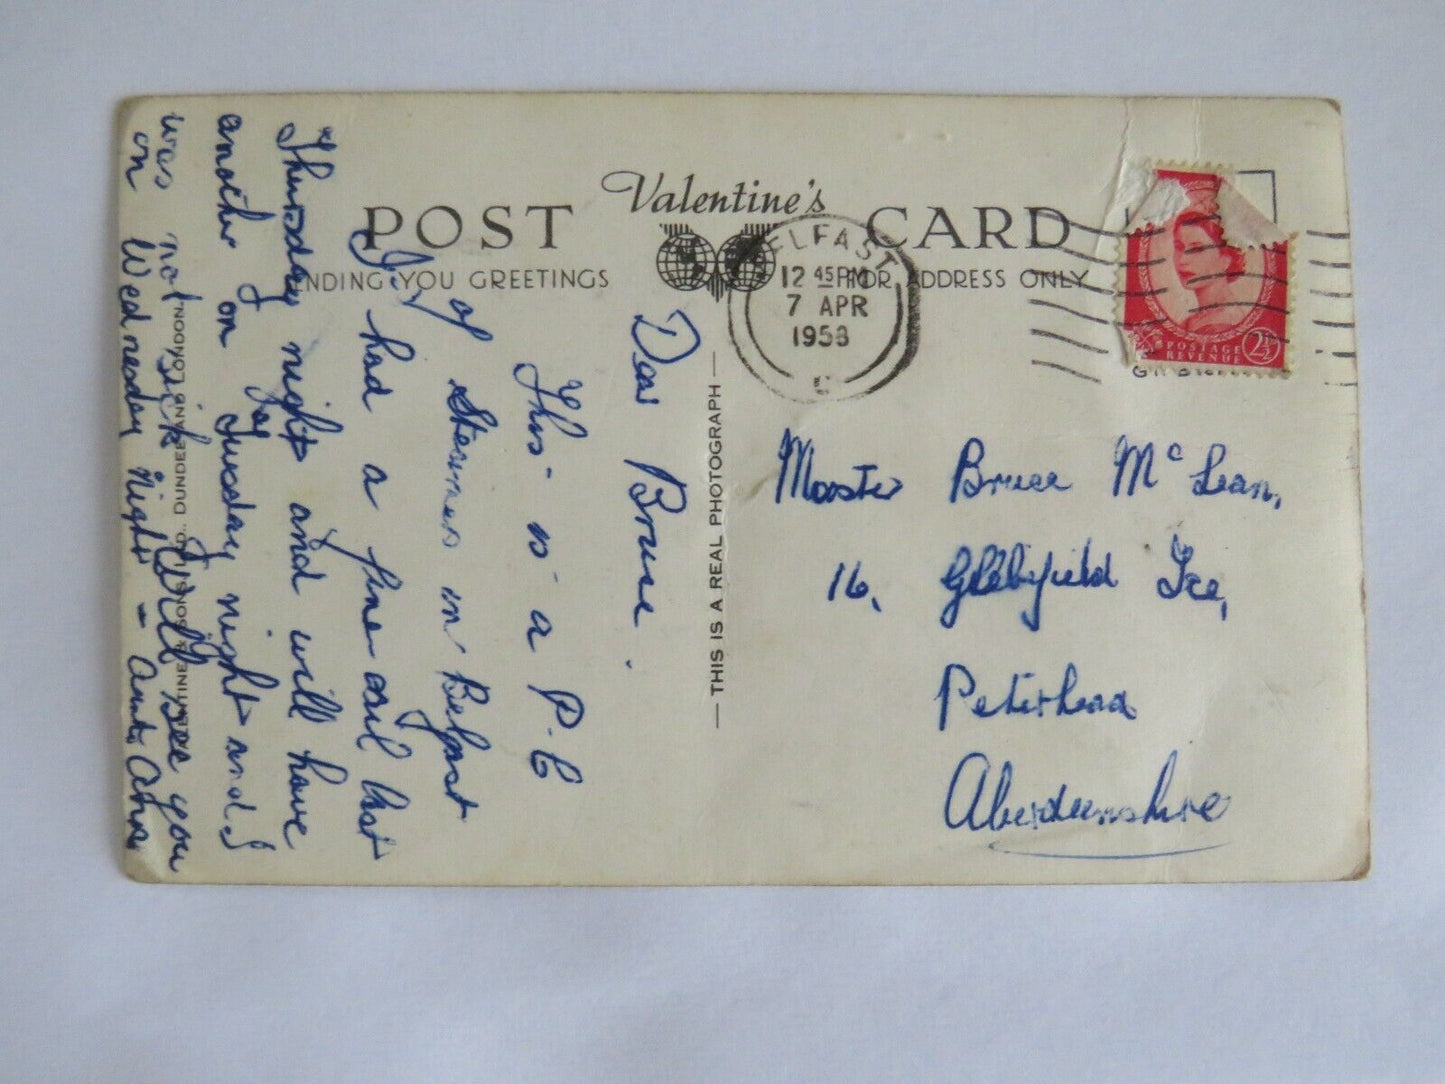 Valentine's
POST CARD
ENDING YOU GREETINGS
FOR ADDRESS ONLY
BELFAST
12 45 PM
7 APR
1958
POSTAGE
REVENUE
2½
Dear Bruce.
This is a P.C
of Steamers in Belfast
I had a fine sail last
Thursday night and will have
another on Tuesday night and
was not sick. Will see you
on Wednesday Night - Aunt
THIS IS A REAL PHOTOGRAPH
VALENTINE & SONS LTD., DUNDEE AND LONDON.
Master Bruce McLean,
16, Glebefield Tce,
Peterhead
Aberdeenshire